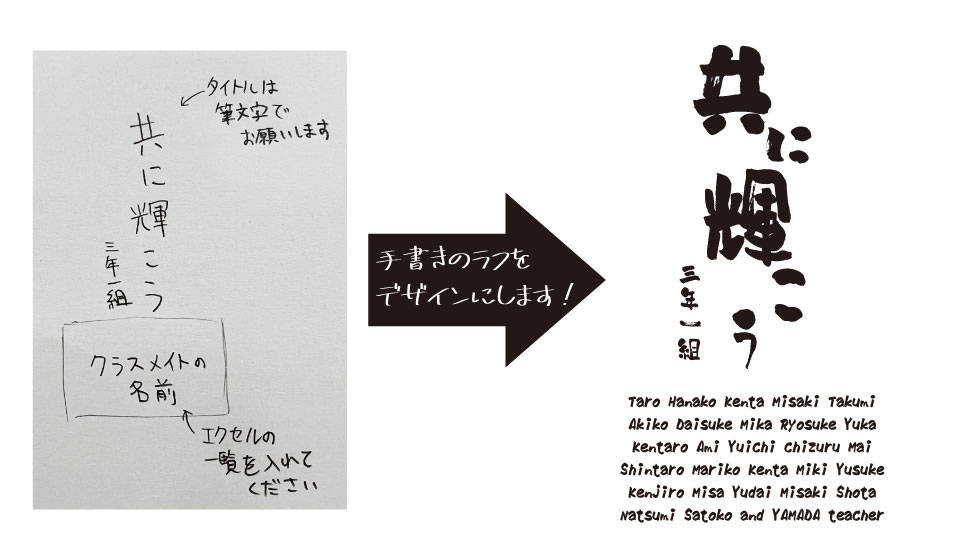 タイトルは
筆文字で
お願いします
共に輝こう
三年一組
クラスメイトの
名前
エクセルの
一覧を入れて
ください
手書きのラフを
デザインにします！
共に輝こう
三年一組
Taro Hanako Kenta Misaki Takumi
Akiko Daisuke Mika Ryosuke Yuka
Kentaro Ami Yuichi chizuru Mai
Shintaro Mariko Kenta Miki Yusuke
Kenjiro Misa Yudai Misaki Shota
Natsumi Satoko and YAMADA teacher